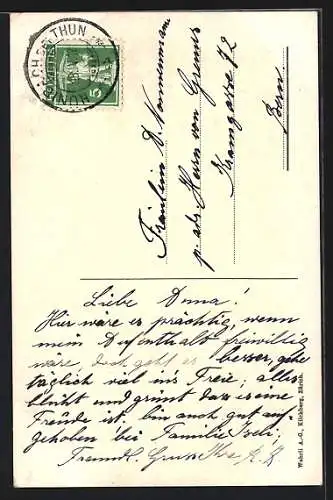 CH BEI THUN
HÜNI
HELVETIA
5
Fräulein A. Nonnenmann
p. adr. Herrn von Grenus
Kramgasse 72
Bern
Liebe Anna!
Hier wäre es prächtig, wenn
mein Aufenthalt freiwillig
wäre, doch geht es besser, gehe
täglich viel ins Freie; alles
blüht und grünt dass es eine
Freude ist. bin auch gut auf-
gehoben bei Familie
Freundl. Gruss Ihre
Wehrli A.-G., Kilchberg, Zürich.